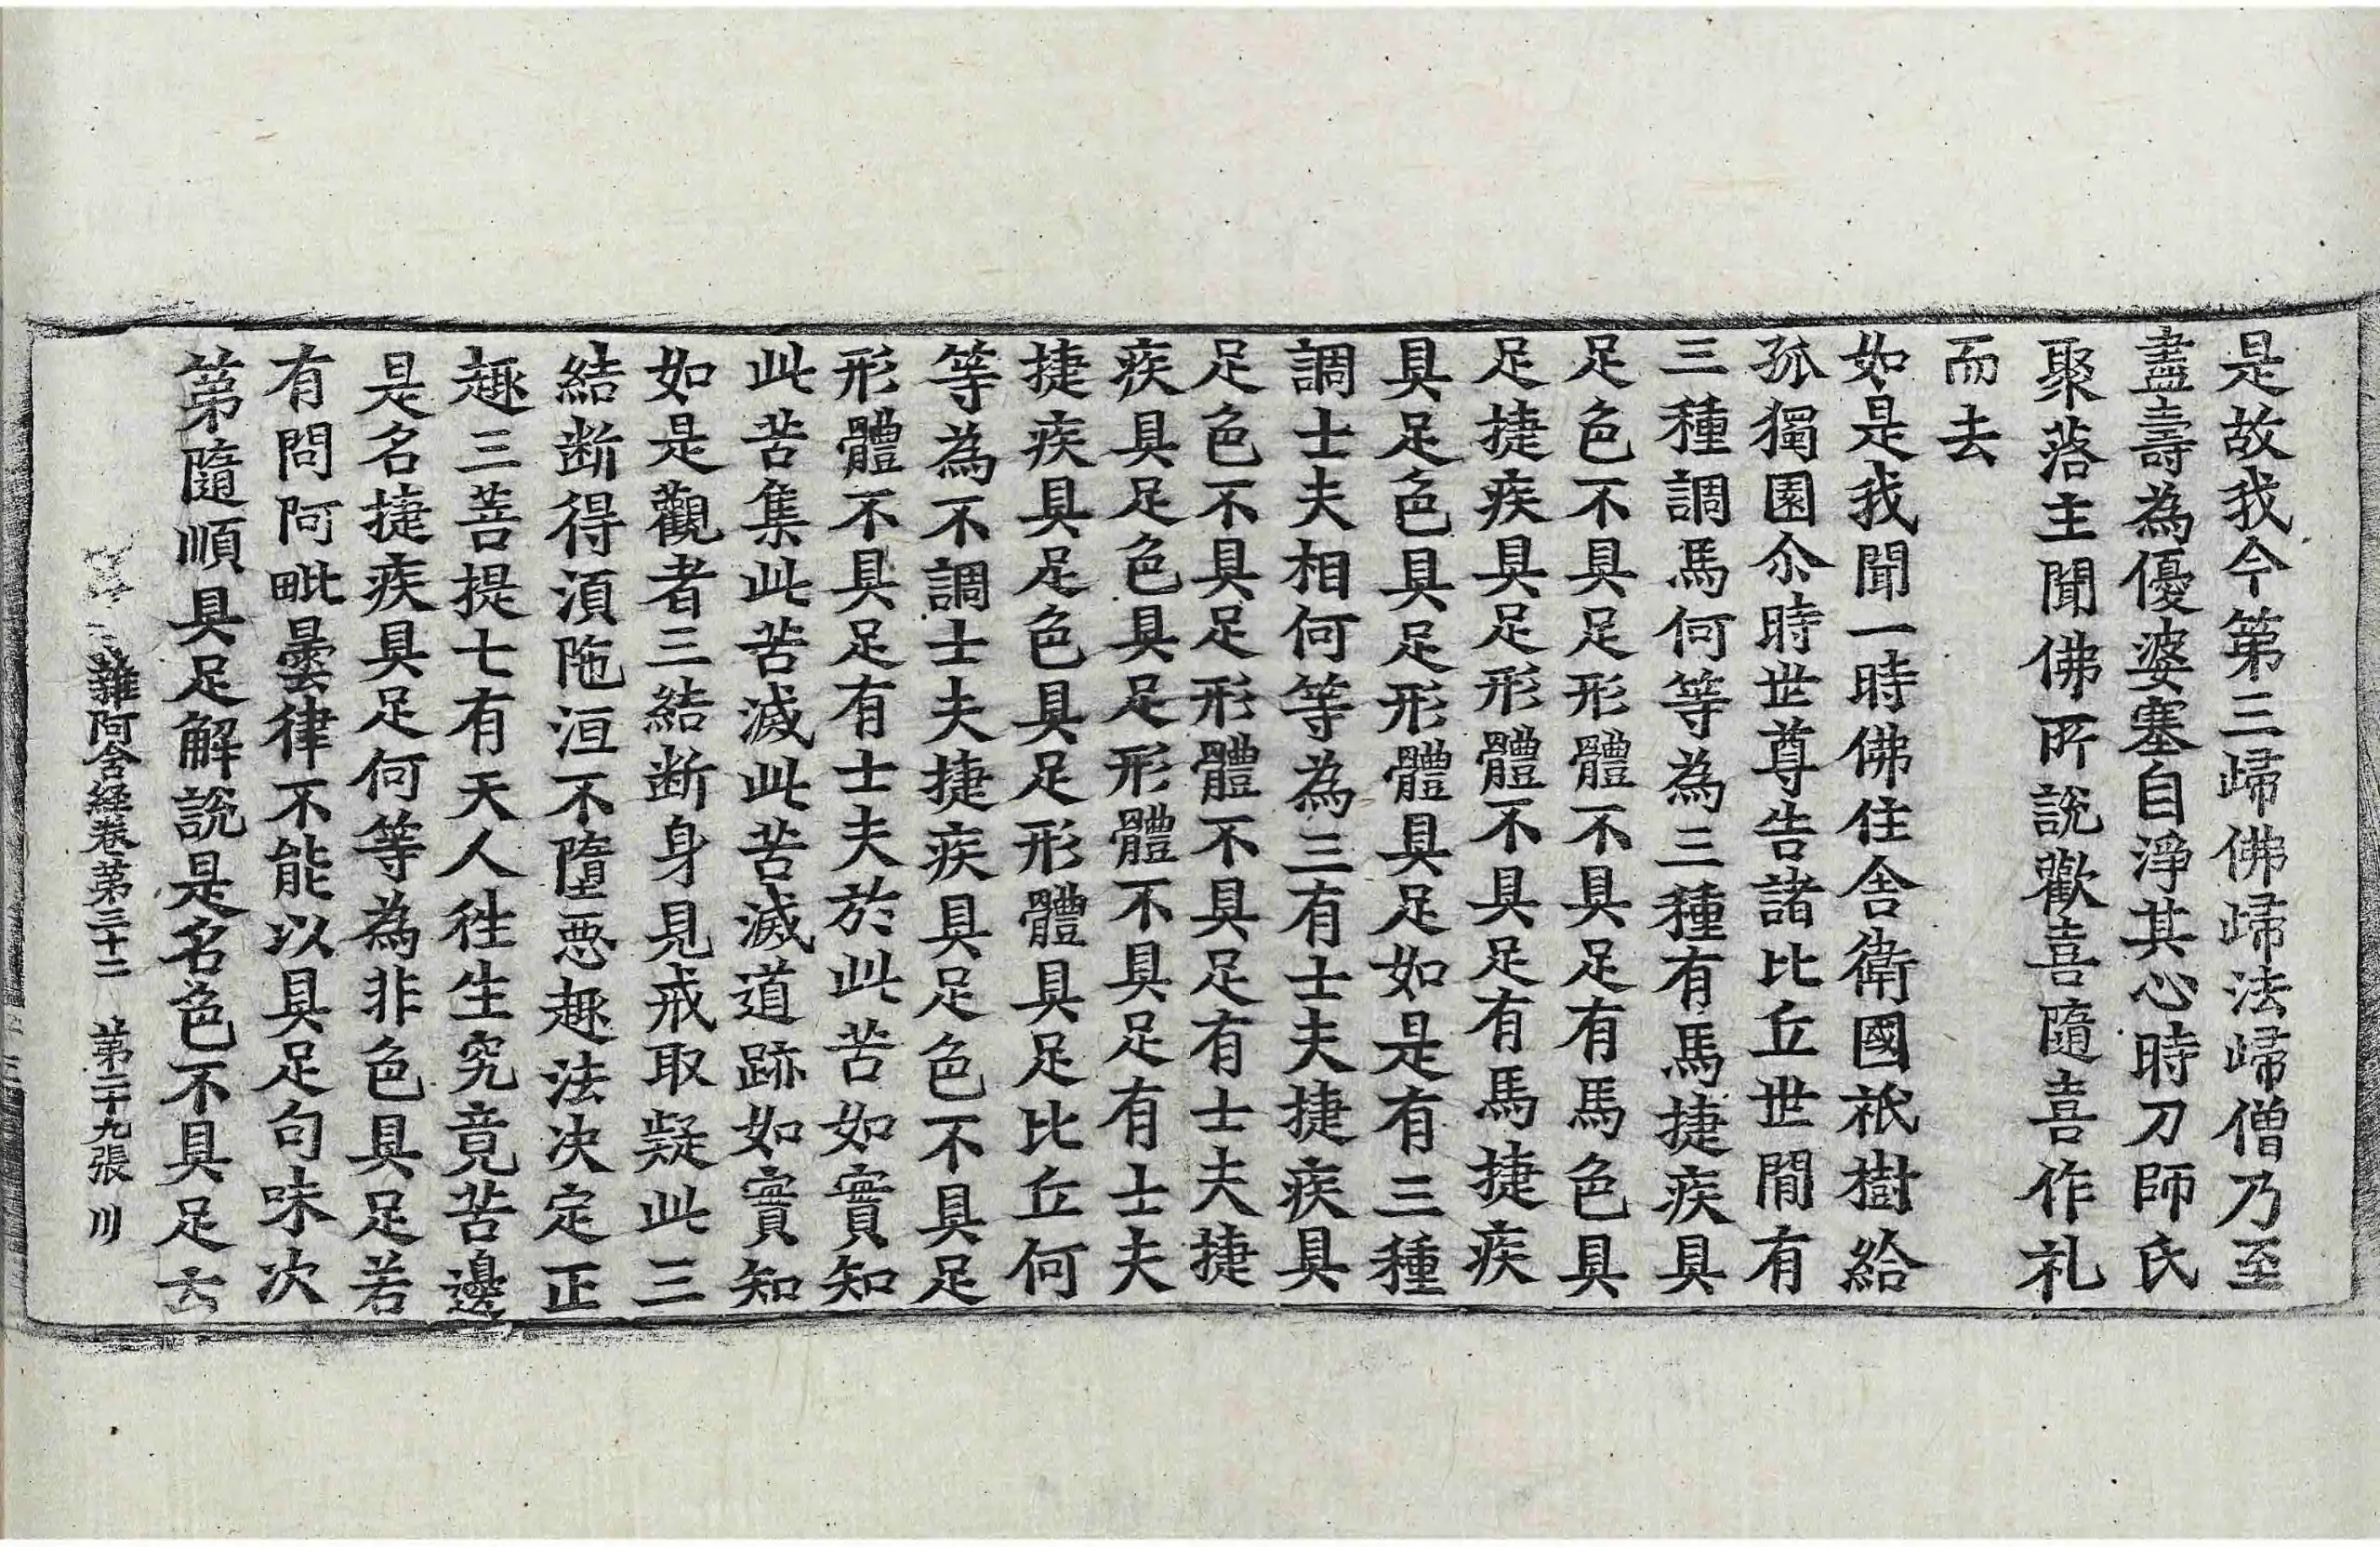 是故我今第三歸佛歸法歸僧乃至
盡壽為優婆塞自淨其心時刀師氏
聚落主聞佛所說歡喜隨喜作礼
而去
如是我聞一時佛住舍衛國祇樹給
孤獨園尒時世尊告諸比丘世間有
三種調馬何等為三種有馬捷疾具
足色不具足形體不具足有馬色具
足捷疾具足形體不具足有馬捷疾
具足色具足形體具足如是有三種
調士夫相何等為三有士夫捷疾具
足色不具足形體不具足有士夫捷
疾具足色具足形體不具足有士夫
捷疾具足色具足形體具足比丘何
等為不調士夫捷疾具足色不具足
形體不具足有士夫於此苦如實知
此苦集此苦滅此苦滅道跡如實知
如是觀者三結斷身見戒取疑此三
結断得湏陁洹不墮惡趣法决定正
趣三菩提七有天人往生究竟苦邊
是名捷疾具足何等為非色具足若
有問阿毗曇律不能以具足句味次
第隨順具足解說是名色不具足云
雜阿含経卷第三十二 第二十九張 川